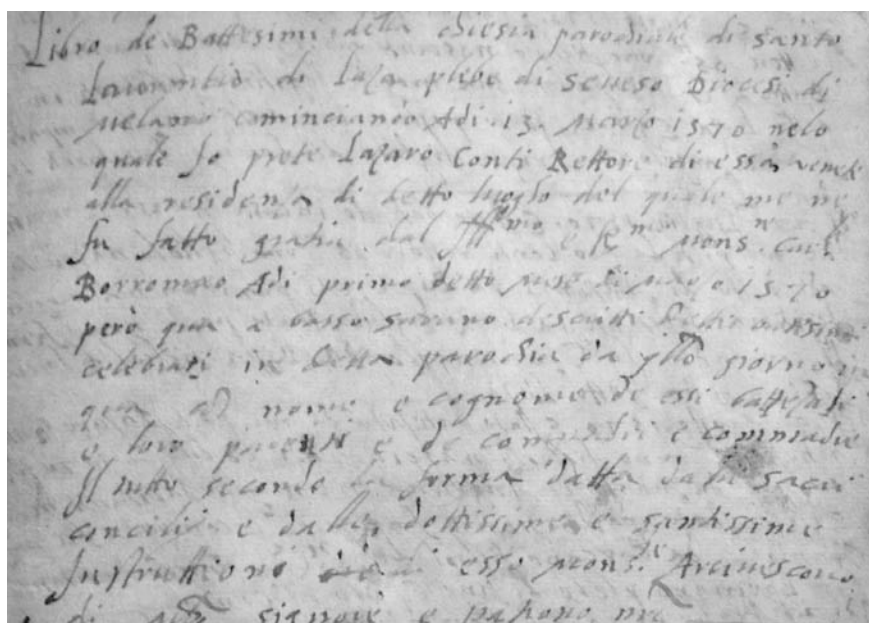 Libro de Battesimi della chiesia parochiale di santo
di Laza plebe di Setteso Diocesi di
cominciando Adi 13. Marzo 1570 nelo
quale Io prete Lazaro Conti Rettore di essa venete
alla residenza di detto luogho del quale me ne
fu fatto gratia dal Ill.mo e R.mo Mons.re Carlo
Borromeo Adi primo detto mese di 1570
però qua a basso sarano descritti
celebrati in detta parochia da giorno in
qua nome e cognome de essi battezati
e loro parenti e de compadri e commadre
Il tutto secondo la forma datta dali sacri
concilii e dalle dottissime e santissime
Instruttioni di esso Mons.re Arcivescovo
di signore e patrono